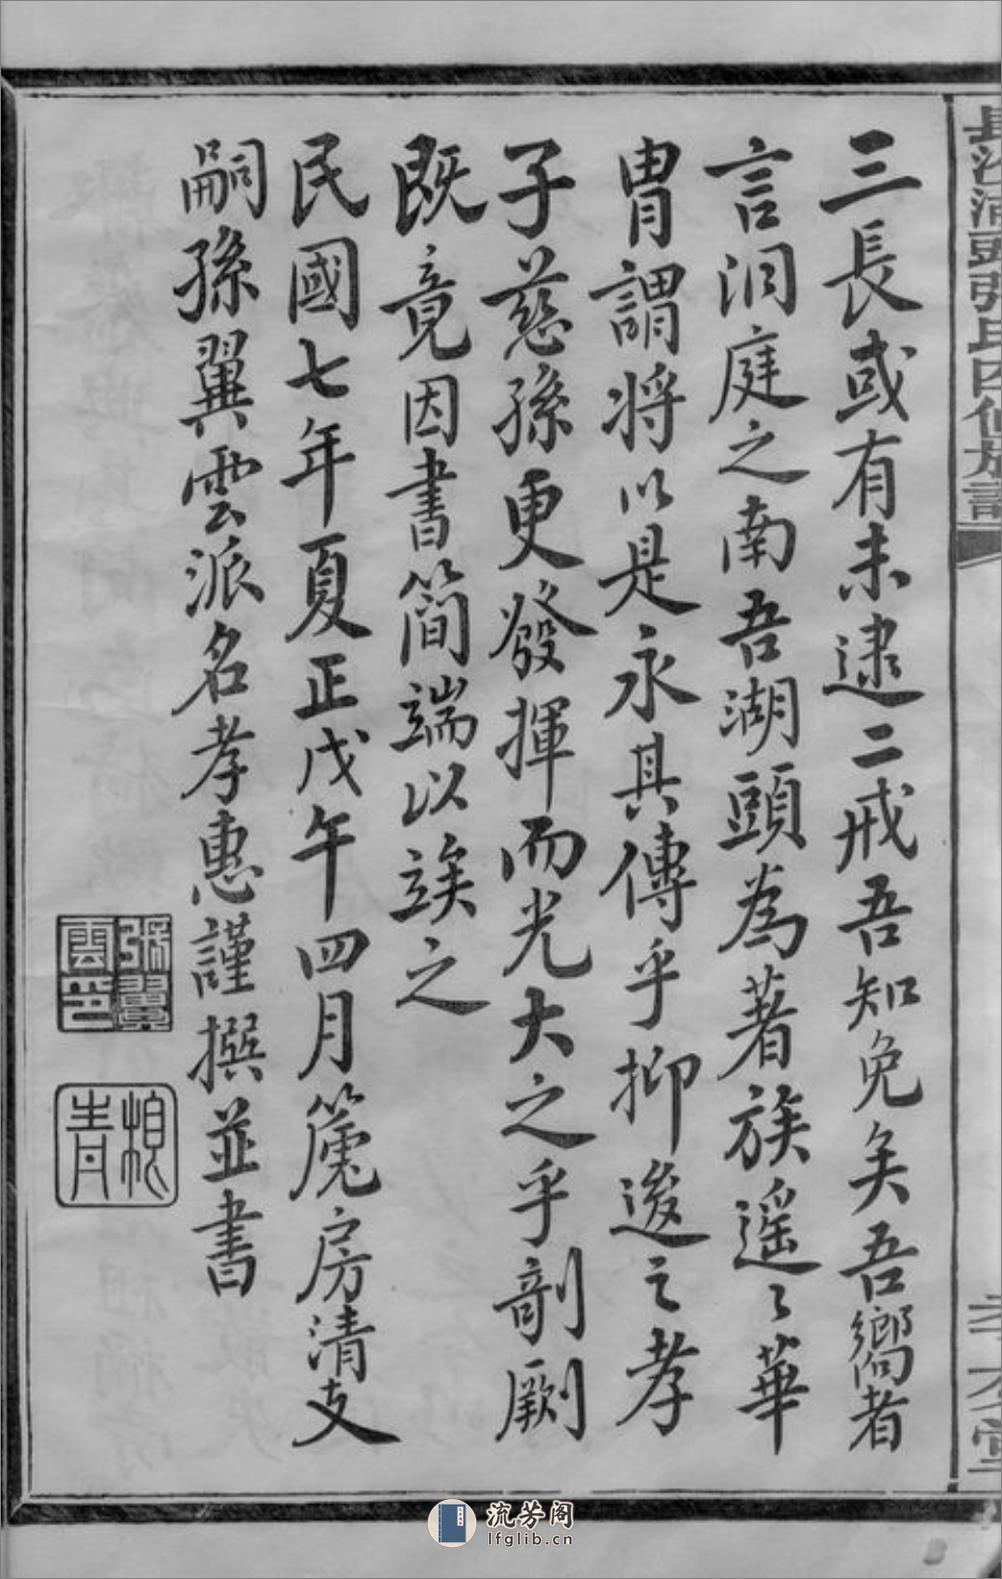 三長或有未逮二戒吾知免矣吾嚮者
言洞庭之南吾湖頭為著族遥々華
胄謂將以是永其傳乎抑逡之孝
子慈孫更發揮而光大之乎剞劂
既竟因書簡端以竢之
民國七年夏正戊午四月篪房清支
嗣孫翼雲派名孝惠謹撰並書
張翼雲印
流芳阁
lfglib.cn